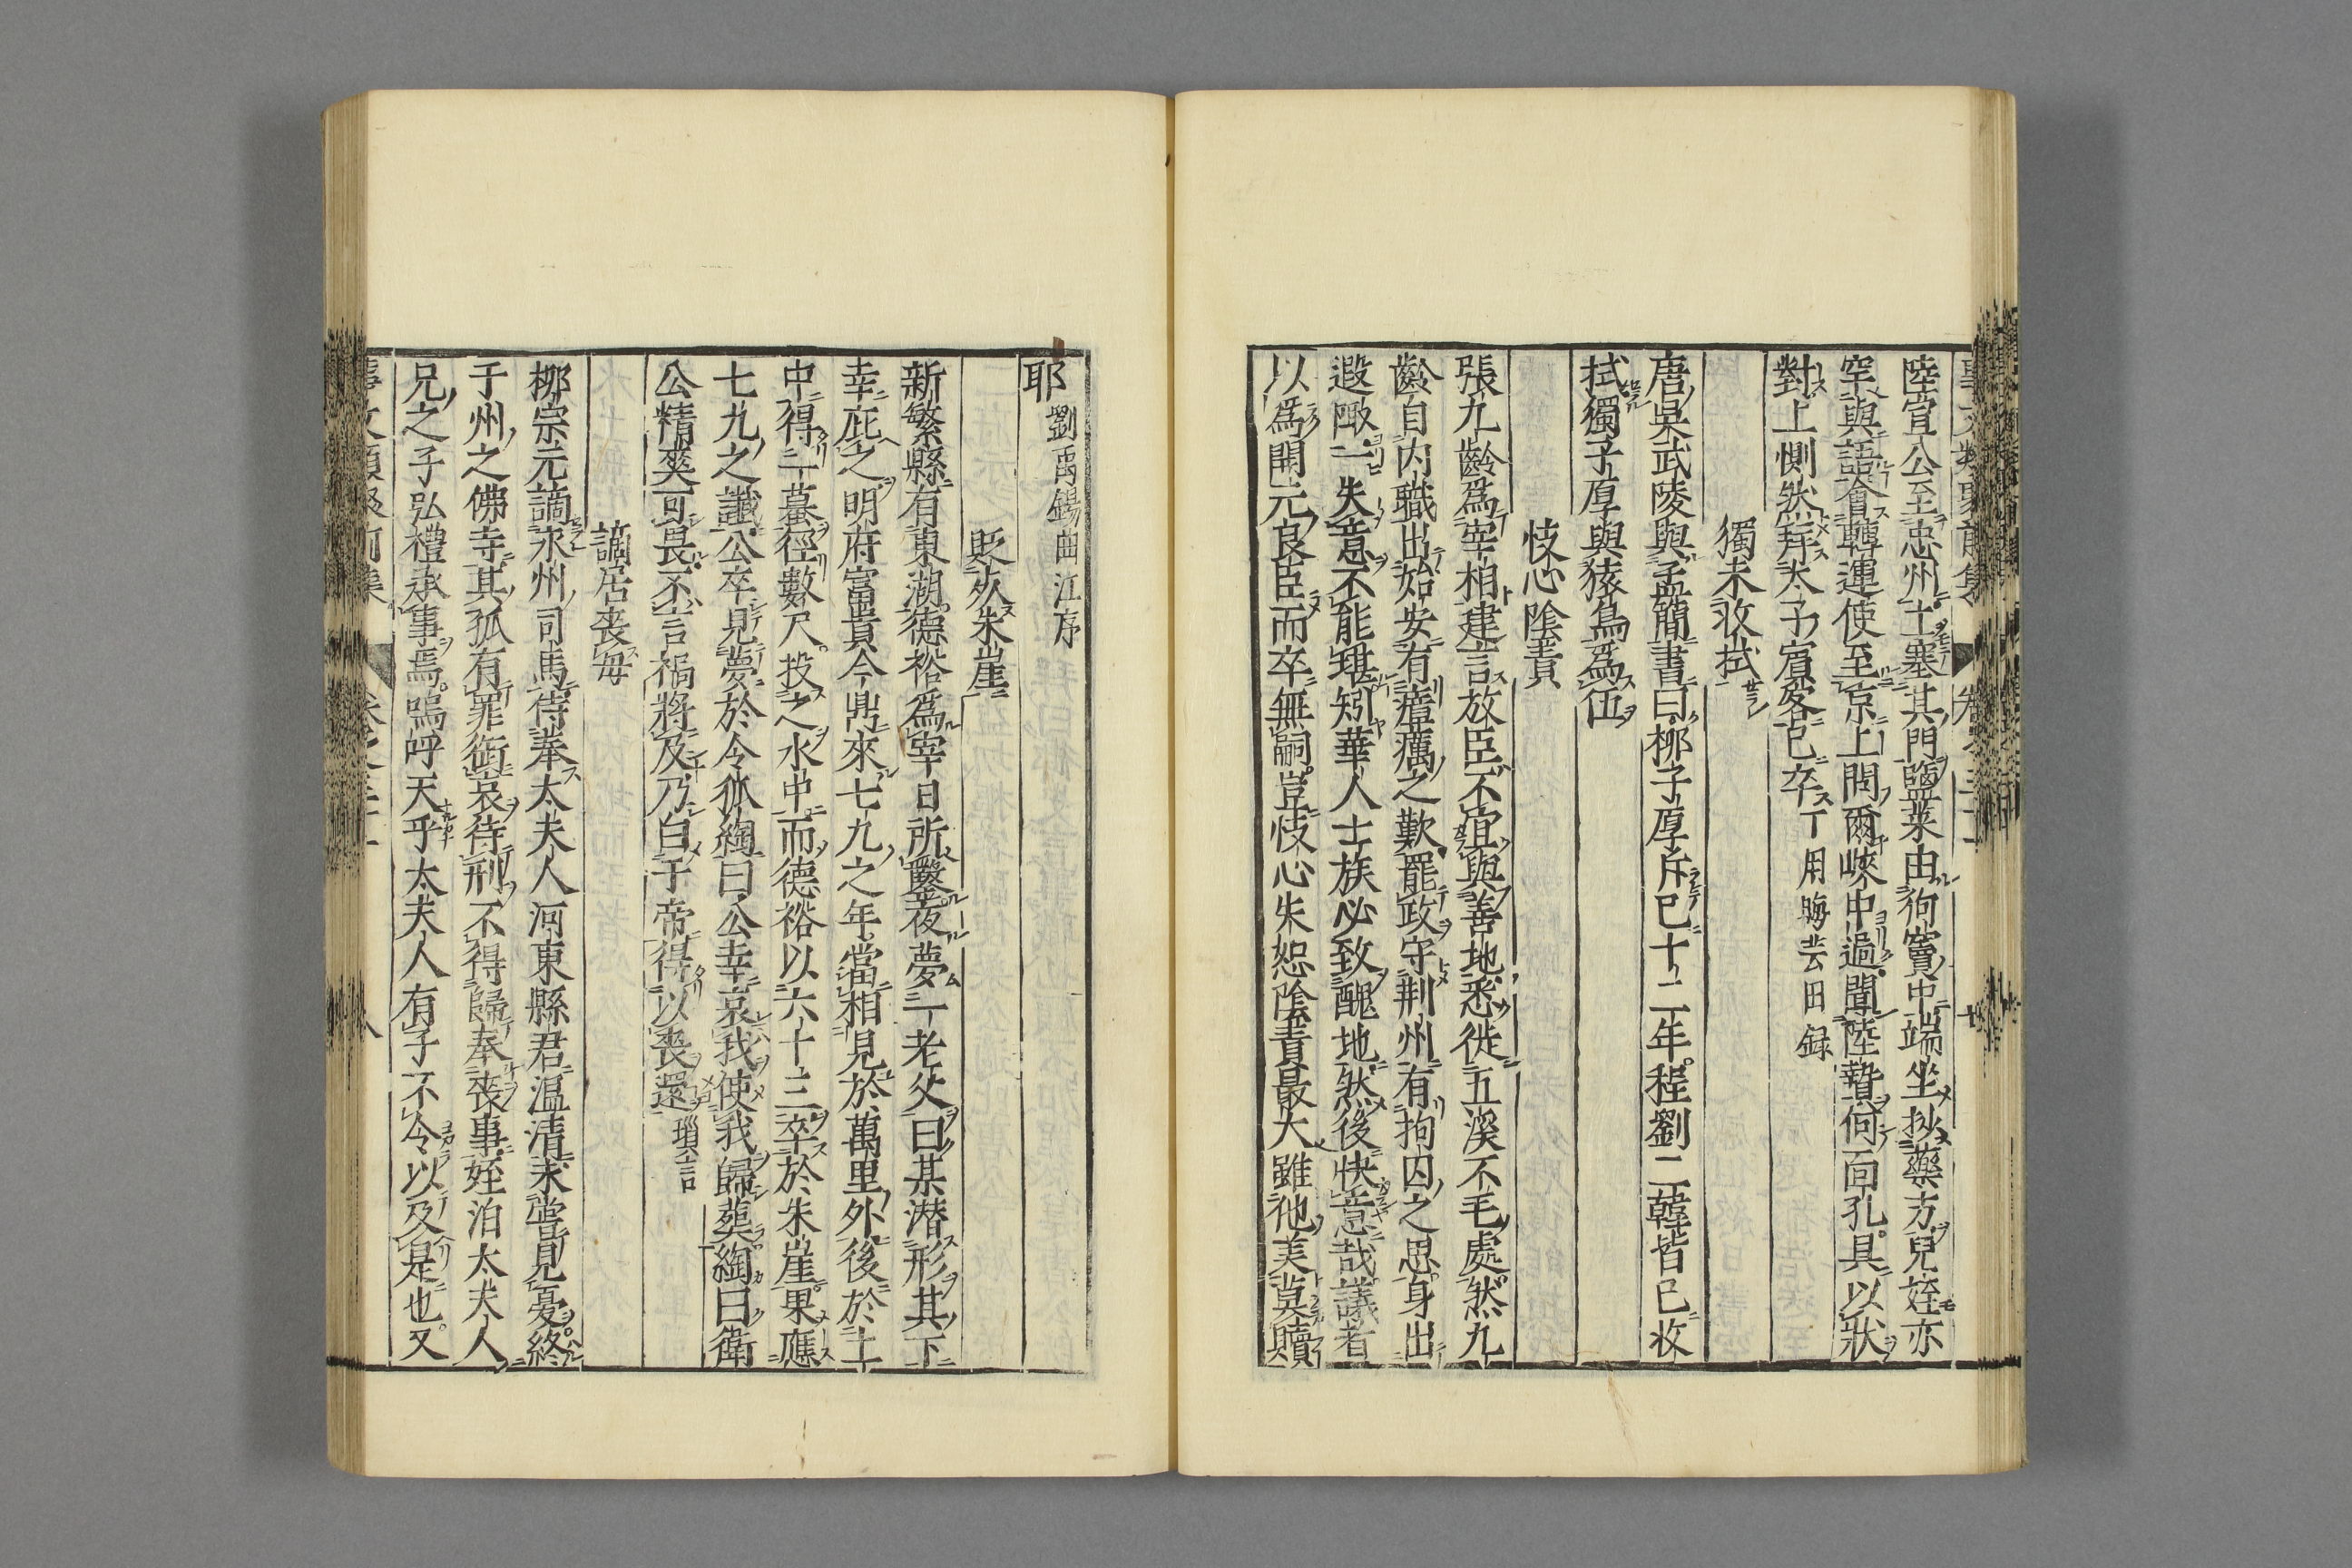 陸宣公至忠州土塞其門鹽菜由狗竇中端坐抄藥方兒姪亦
罕與語會轉運使至京上問爾峽中過聞陸贄何面孔具以狀
對上惻然拜太子賓客已卒 丁用晦芸田録
獨未收拭
唐吳武陵與孟簡書曰柳子厚斥已十二年程劉二韓皆已收
拭獨子厚與猿鳥爲伍
忮心陰責
張九齡爲宰相建言放臣不宜與善地悉徙五溪不毛處然九
齡自内職出始安有瘴癘之歎罷政守荆州有拘囚之思身出
遐陬一失意不能堪矧華人士族必致醜地然後快意哉議者
以爲開元良臣而卒無嗣豈忮心失恕陰責最大雖他美莫贖
耶 劉禹錫曲江序
貶死朱崖
新繁縣有東湖德裕爲宰日所鑿夜夢一老父曰某潜形其下
幸庇之明府富貴今鼎來七九之年當相見於萬里外後於土
中得一蟇徑數尺投之水中而德裕以六十三卒於朱崖果應
七九之讖公卒見夢於令狐綯曰公幸哀我使我歸葬綯曰衛
公精爽可畏不言禍將及乃白于帝得以喪還 瑣言
謫居喪母
柳宗元謫永州司馬侍奉太夫人河東縣君温清未嘗見憂終
于州之佛寺其孤有罪銜哀待刑不得歸奉喪事姪洎太夫人
兄之子弘禮承事焉嗚呼天乎太夫人有子不令以及是也又